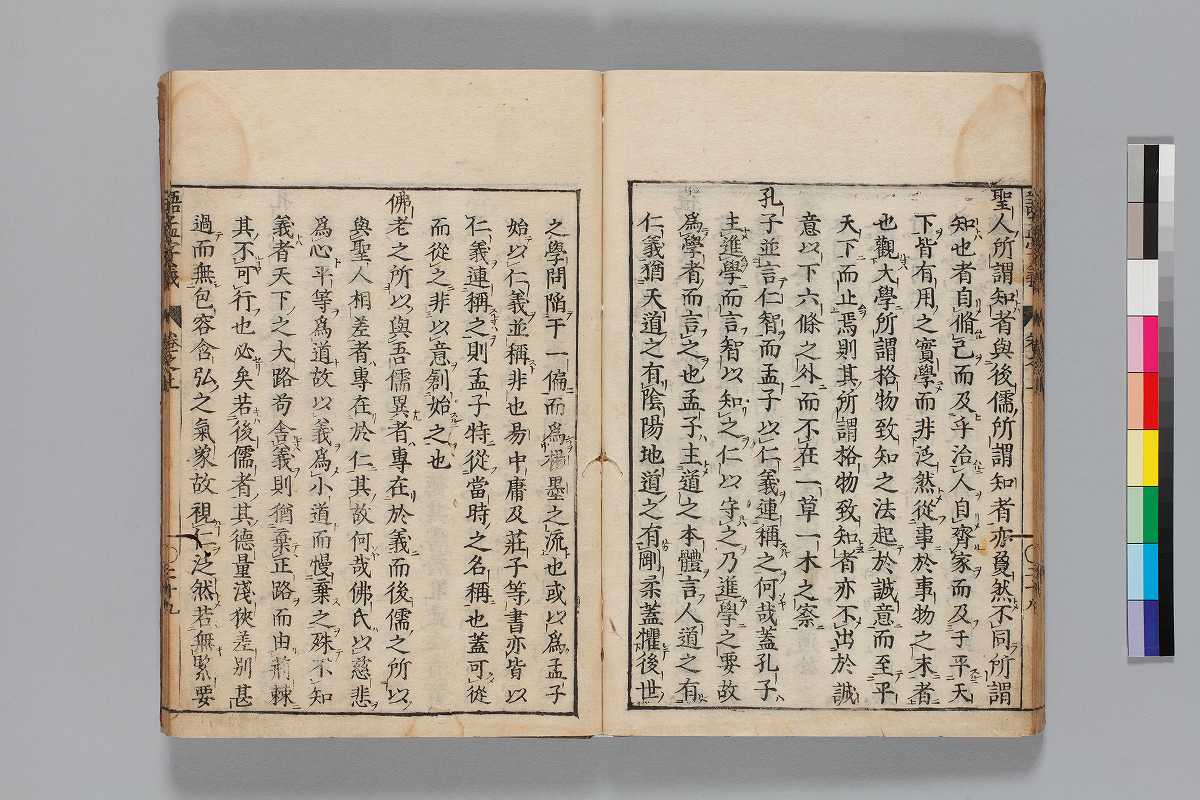 聖人所謂知者與後儒所謂知者亦夐然不同所謂
知也者自脩己而及乎治人自齊家而及于平天
下皆有用之實學而非泛然從事於事物之末者
也觀大學所謂格物致知之法起於誠意而至乎
天下而止焉則其所謂格物致知者亦不出於誠
意以下六條之外而不在一草一木之察
孔子並言仁智而孟子以仁義連稱之何哉蓋孔子
主進學而言智以知之仁以守之乃進學之要故
為學者而言之也孟子主道之本體言人道之有
仁義猶天道之有陰陽地道之有剛柔蓋懼後世
之學問陷于一偏而為楊墨之流也或以為孟子
始以仁義並稱非也易中庸及莊子等書亦皆以
仁義連稱之則孟子特從當時之名稱也蓋可從
而從之非以意創始之也
佛老之所以與吾儒異者專在於義而後儒之所以
與聖人相差者專在於仁其故何哉佛氏以慈悲
為心平等為道故以義為小道而慢棄之殊不知
義者天下之大路苟舍義則猶棄正路而由荊棘
其不可行也必矣若後儒者其德量淺狹差別甚
過而無包容含弘之氣象故視仁泛然若無緊要
語孟字義
卷之上
二十九